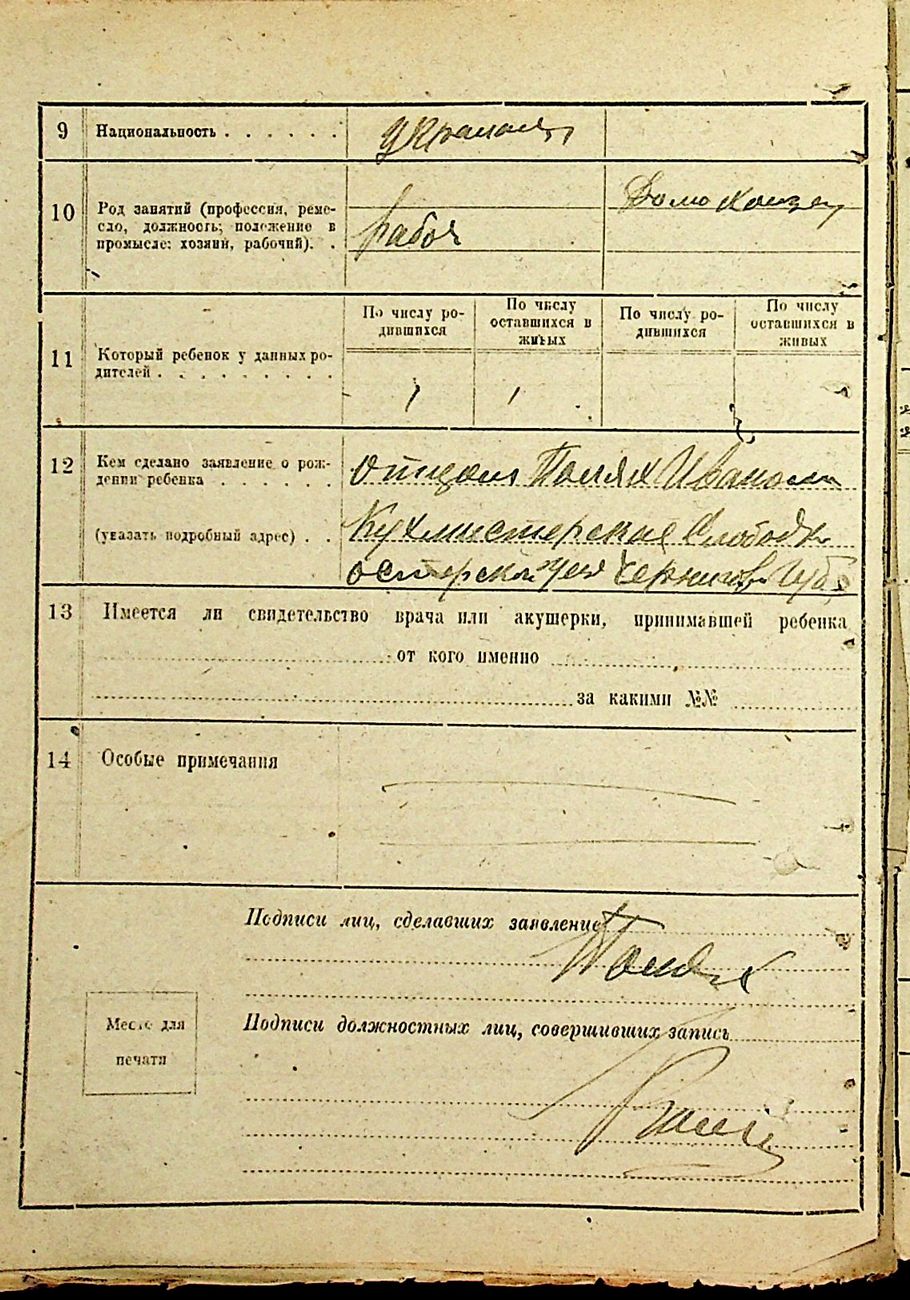 9 Национальность . . . . . .
10 Род занятий (профессия, реме-
сло, должность; положение в
промысле: хозяин, рабочий). .
рабоч
11 Который ребенок у данных ро-
дителей . . . . . . . . .
По числу ро-
дившихся
По числу
оставшихся в
живых
По числу ро-
дившихся
По числу
оставшихся в
живых
1 1
12 Кем сделано заявление о рож-
дении ребенка . . . . . .
отцом Поляк Иваном
(указать подробный адрес) . .
Кухмистерская Слободка
остерской уез Чернигов Губ.
13 Имеется ли свидетельство врача или акушерки, принимавшей ребенка
от кого именно
за какими №№
14 Особые примечания
Подписи лиц, сделавших заявление
Поляк
Место для
печати
Подписи должностных лиц, совершивших запись